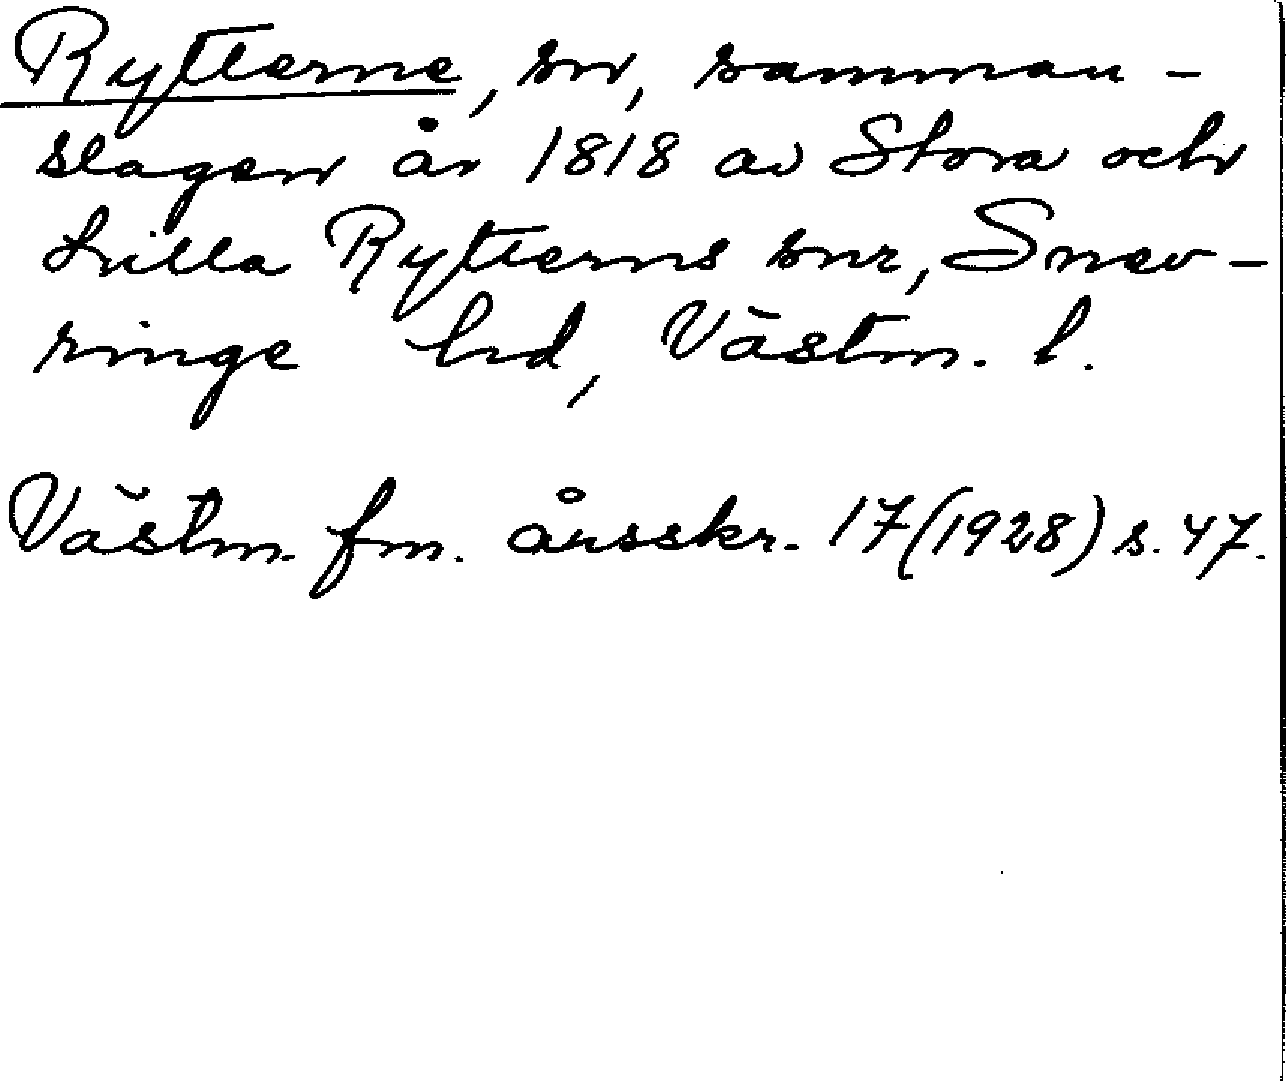 Rytterne, sn, samman-
slagen år 1818 av Stora och
Lilla Rytterns snr, Snev-
ringe hd, Västm. l.
Västm. fm. årsskr. 17(1928) s. 47.